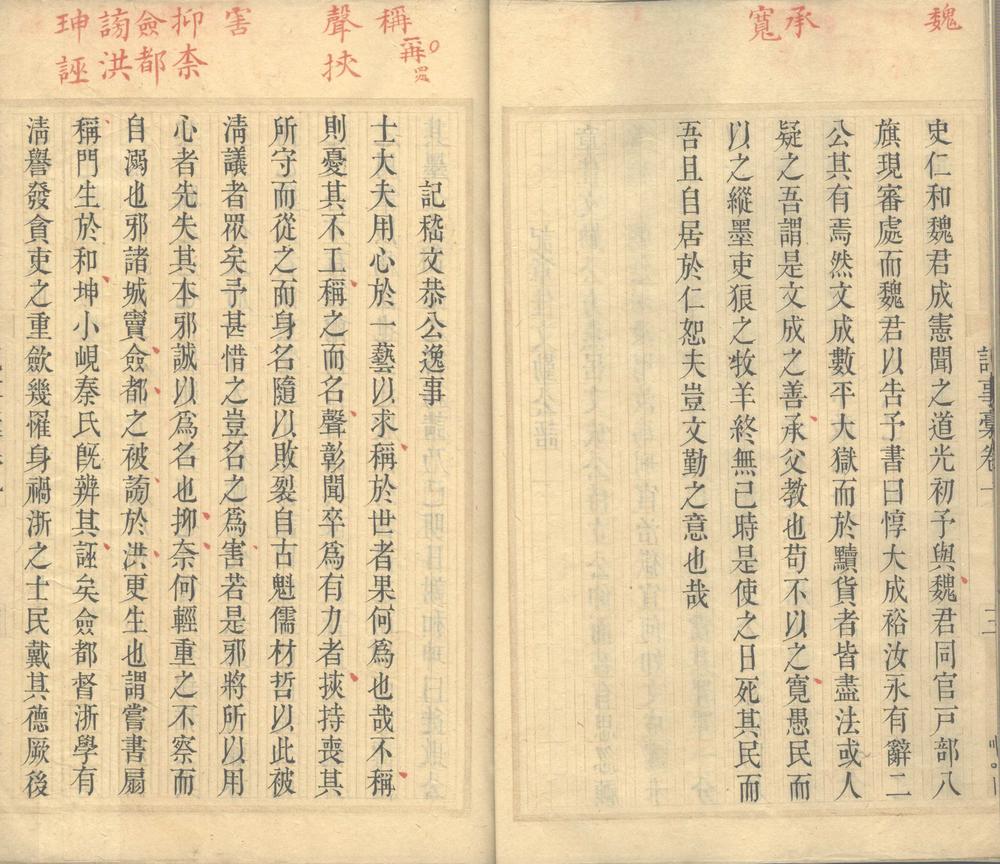 魏
承
寬
史仁和魏君成憲聞之道光初予與魏君同官戸部八
旗現審處而魏君以告予書曰惇大成裕汝永有辭二
公其有焉然文成數平大獄而於黷貨者皆盡法或人
疑之吾謂是文成之善承父教也苟不以之寬愚民而
以之縱墨吏狼之牧羊終無已時是使之日死其民而
吾且自居於仁恕夫豈文勤之意也哉
稱
再
聲挾
害
抑柰
僉都
謗洪
珅誣
記嵇文恭公逸事
士大夫用心於一藝以求稱於世者果何為也哉不稱
則憂其不工稱之而名聲彰聞卒為有力者挾持喪其
所守而從之而身名隨以敗裂自古魁儒材哲以此被
淸議者眾矣予甚惜之豈名之為害若是邪將所以用
心者先失其本邪誠以為名也抑奈何輕重之不察而
自溺也邪諸城竇僉都之被謗於洪更生也謂嘗書扇
稱門生於和珅小峴秦氏旣辨其誣矣僉都督浙學有
淸譽發貪吏之重斂幾罹身禍浙之士民戴其德厥後